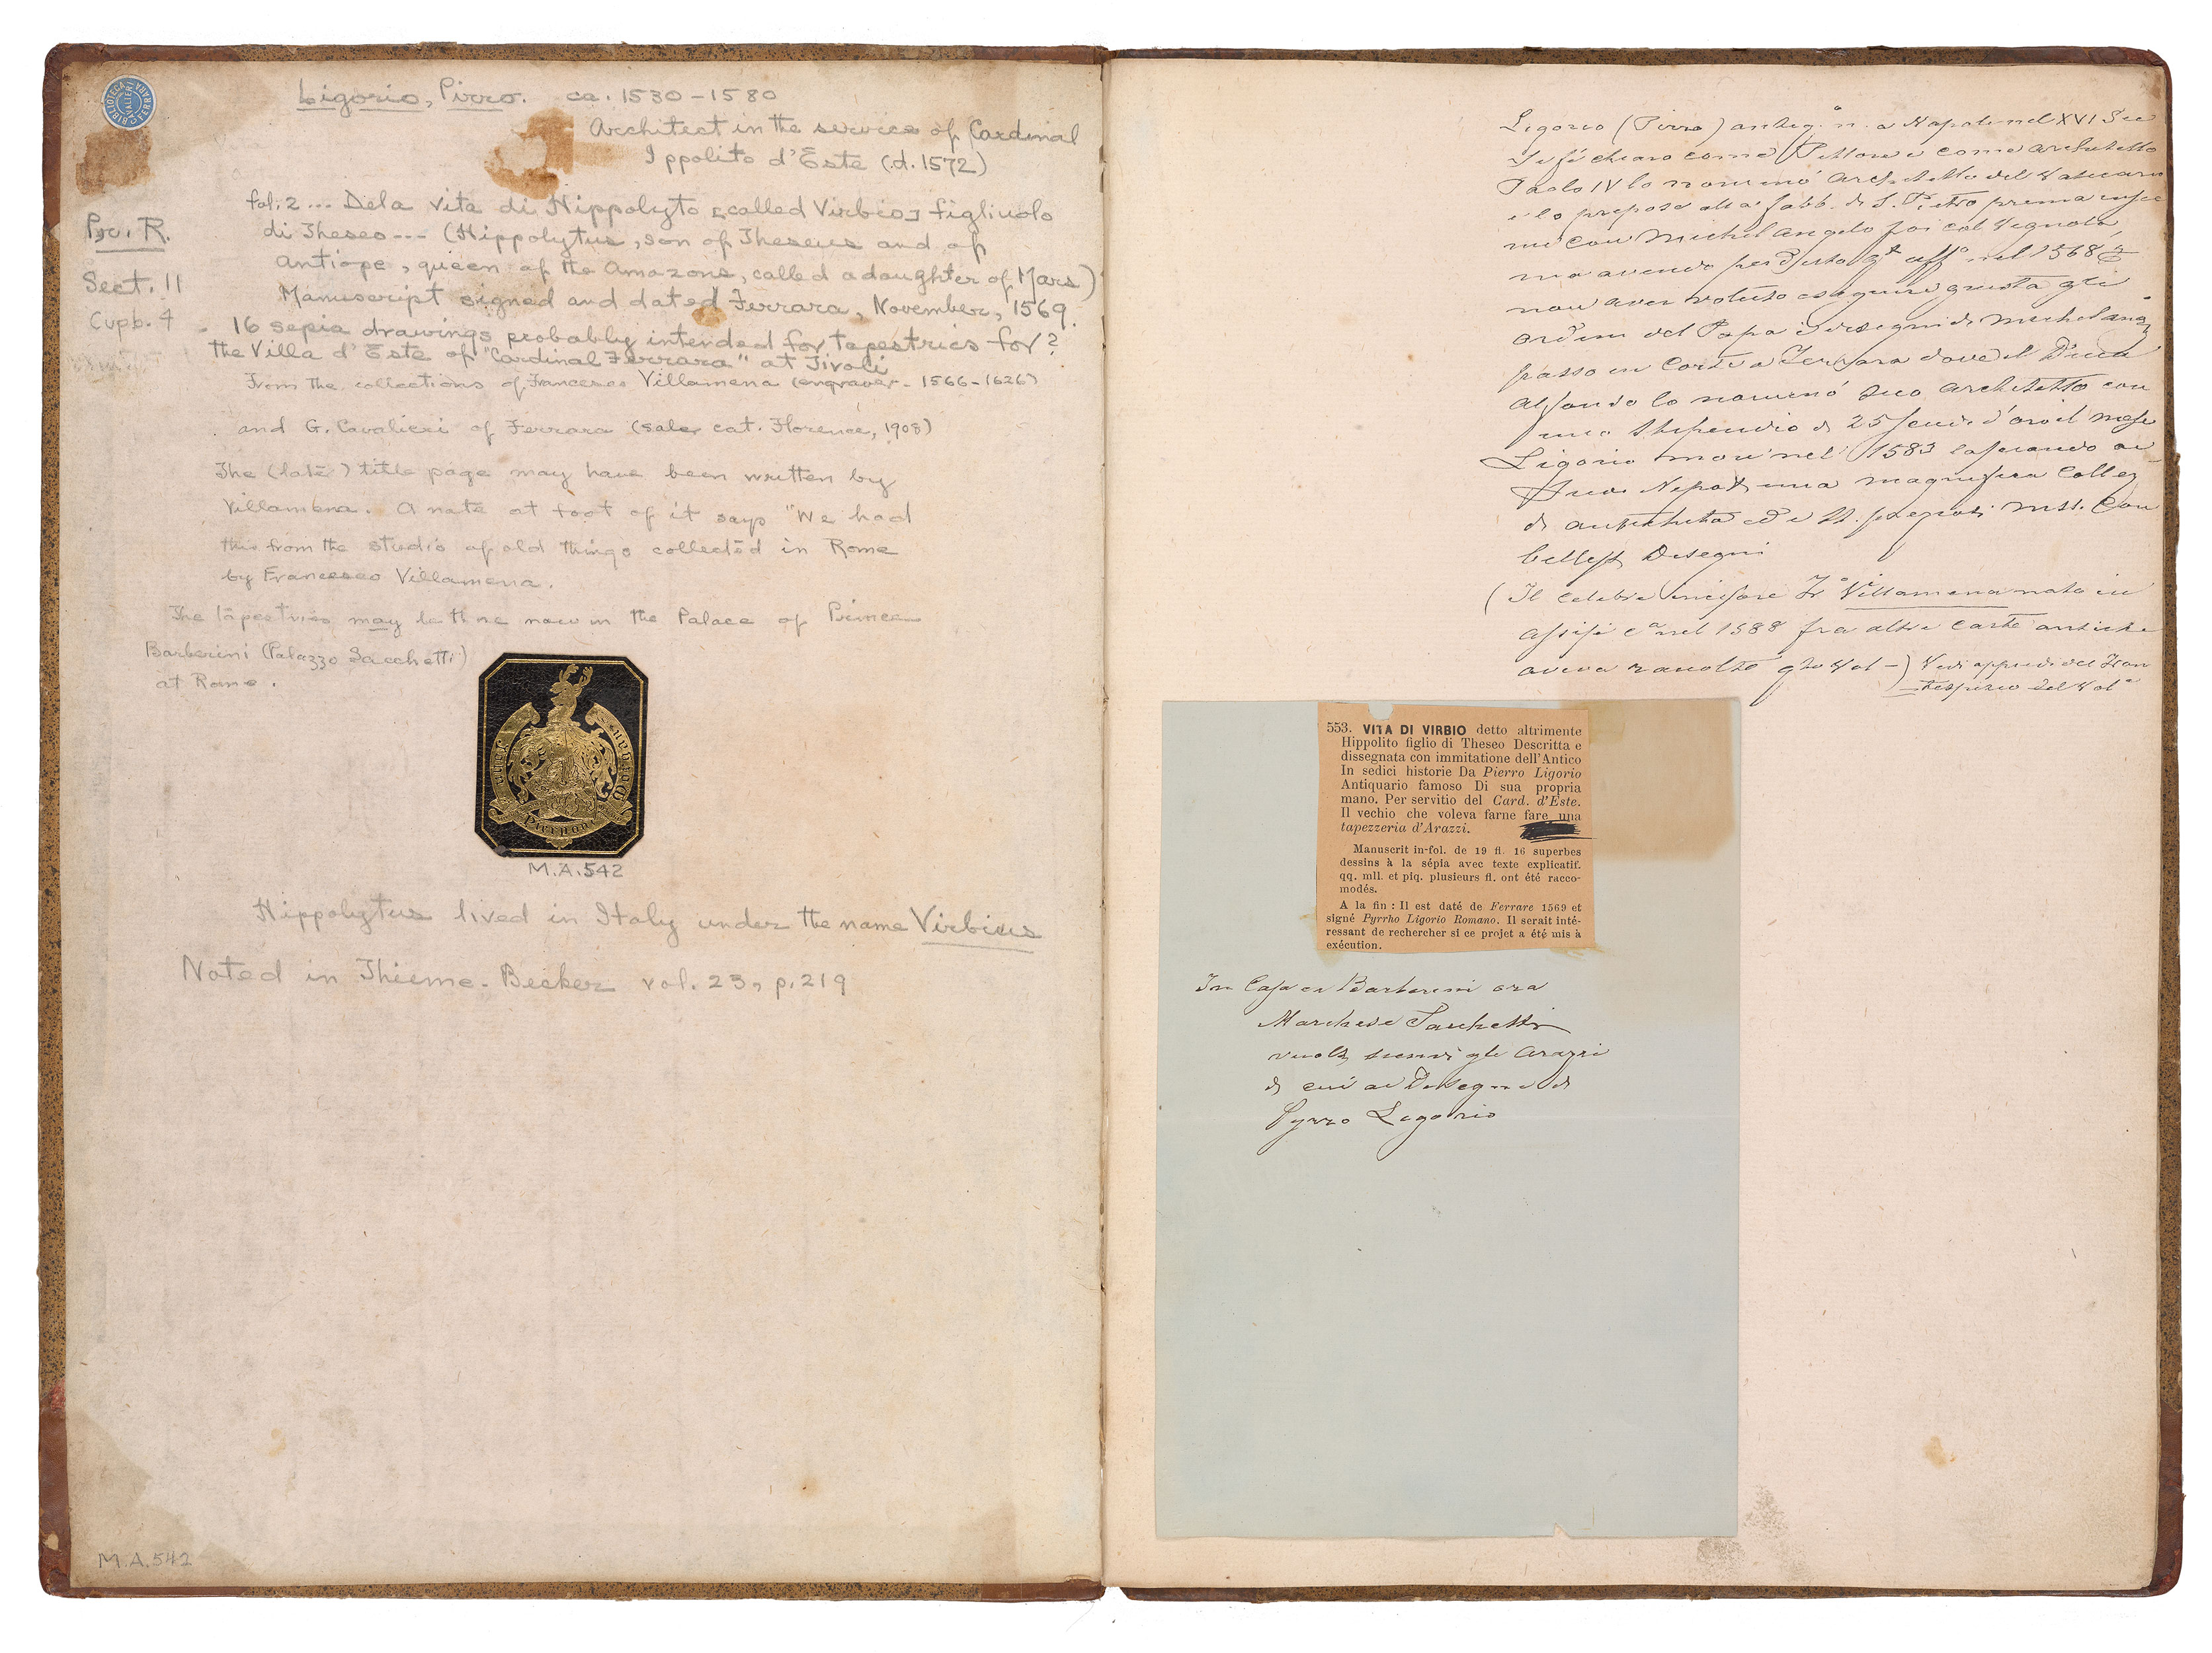 BIBLIOTECA
CAVALIERI
FERRARA
Ligorio, Pirro. ca. 1530-1580
Architect in the service of Cardinal
Ippolito d'Este (d. 1572)
Pr. R.
Sect. 11
Cupb. 4
fol. 2 ... Dela vita di Hippolyto [called Virbio] figliuolo
di Theseo --- (Hippolytus, son of Theseus and of
Antiope, queen of the Amazons, called a daughter of Mars)
Manuscript signed and dated Ferrara, November, 1569.
16 sepia drawings probably intended for tapestries for?
the Villa d'Este of "Cardinal Ferrara" at Tivoli
From the collections of Francesco Villamena (engraver - 1566-1626)
and G. Cavalieri of Ferrara (sale cat. Florence, 1908)
The (late) title page may have been written by
Villamena. A note at foot of it says "We had
this from the studio of old things collected in Rome
by Francesco Villamena.
The tapestries may be those now in the Palace of Prince
Barberini (Palazzo Sacchetti)
at Rome.
John Pierpont Morgan
M.A.542
Hippolytus lived in Italy under the name Virbius
Noted in Thieme-Becker vol. 23, p. 219
M.A.542
Ligorio (Pirro) antiq. n. a Napoli nel XVI Sec
Si fé chiaro come Pittore e come architetto
Paolo IV lo nominó Architetto del Vaticano
e lo prepose alla fabb. di S. Pietro prima insie
me con Michelangelo poi col Vignola,
ma avendo perduto qt uffo nel 1568 p
non aver voluto eseguire giusta gli
ordini del Papa i disegni di Michelang
passo in Corte a Ferrara dove il Duca
Alfonso lo nominó suo Architetto con
uno Stipendio di 25 scudi d'oro il mese
Ligorio morì nel 1583 lasciando ai
suoi Nepoti una magnifica Collez
di antichità ed i pregiati mss. con
belliss Disegni
(Il celebre incisore Fr Villamena nato in
Assisi ca nel 1588 fra altre carte antiche
aveva raccolto qto Vol -) Vedi appiedi del Fron
tespizio del Vole
553. VITA DI VIRBIO detto altrimente
Hippolito figlio di Theseo Descritta e
dissegnata con immitatione dell'Antico
In sedici historie Da Pierro Ligorio
Antiquario famoso Di sua propria
mano. Per servitio del Card. d'Este.
Il vechio che voleva farne fare una
tapezzeria d'Arazzi.
Manuscrit in-fol. de 19 fl. 16 superbes
dessins à la sépia avec texte explicatif.
qq. mll. et piq. plusieurs fl. ont été racco-
modés.
A la fin : Il est daté de Ferrare 1569 et
signé Pyrrho Ligorio Romano. Il serait inté-
ressant de rechercher si ce projet a été mis à
exécution.
In Casa ex Barberini ora
Marchese Sacchetti
vuolsi sienvi gli Arazzi
di cui ai Disegni di
Pyrro Ligorio